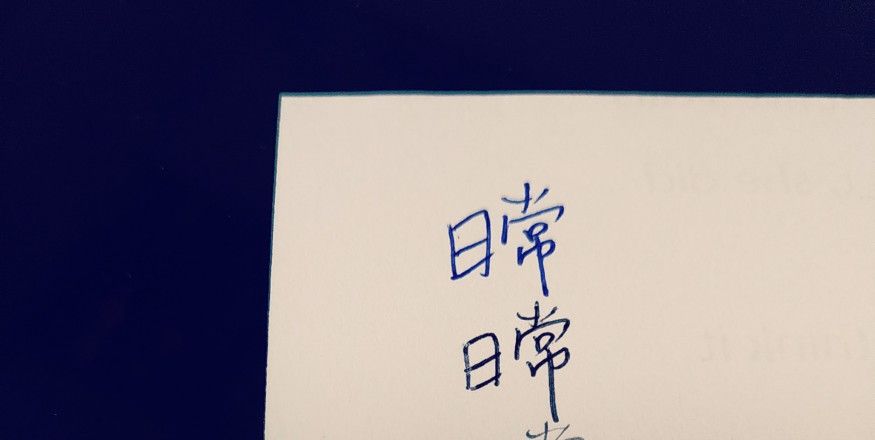 日常
日常